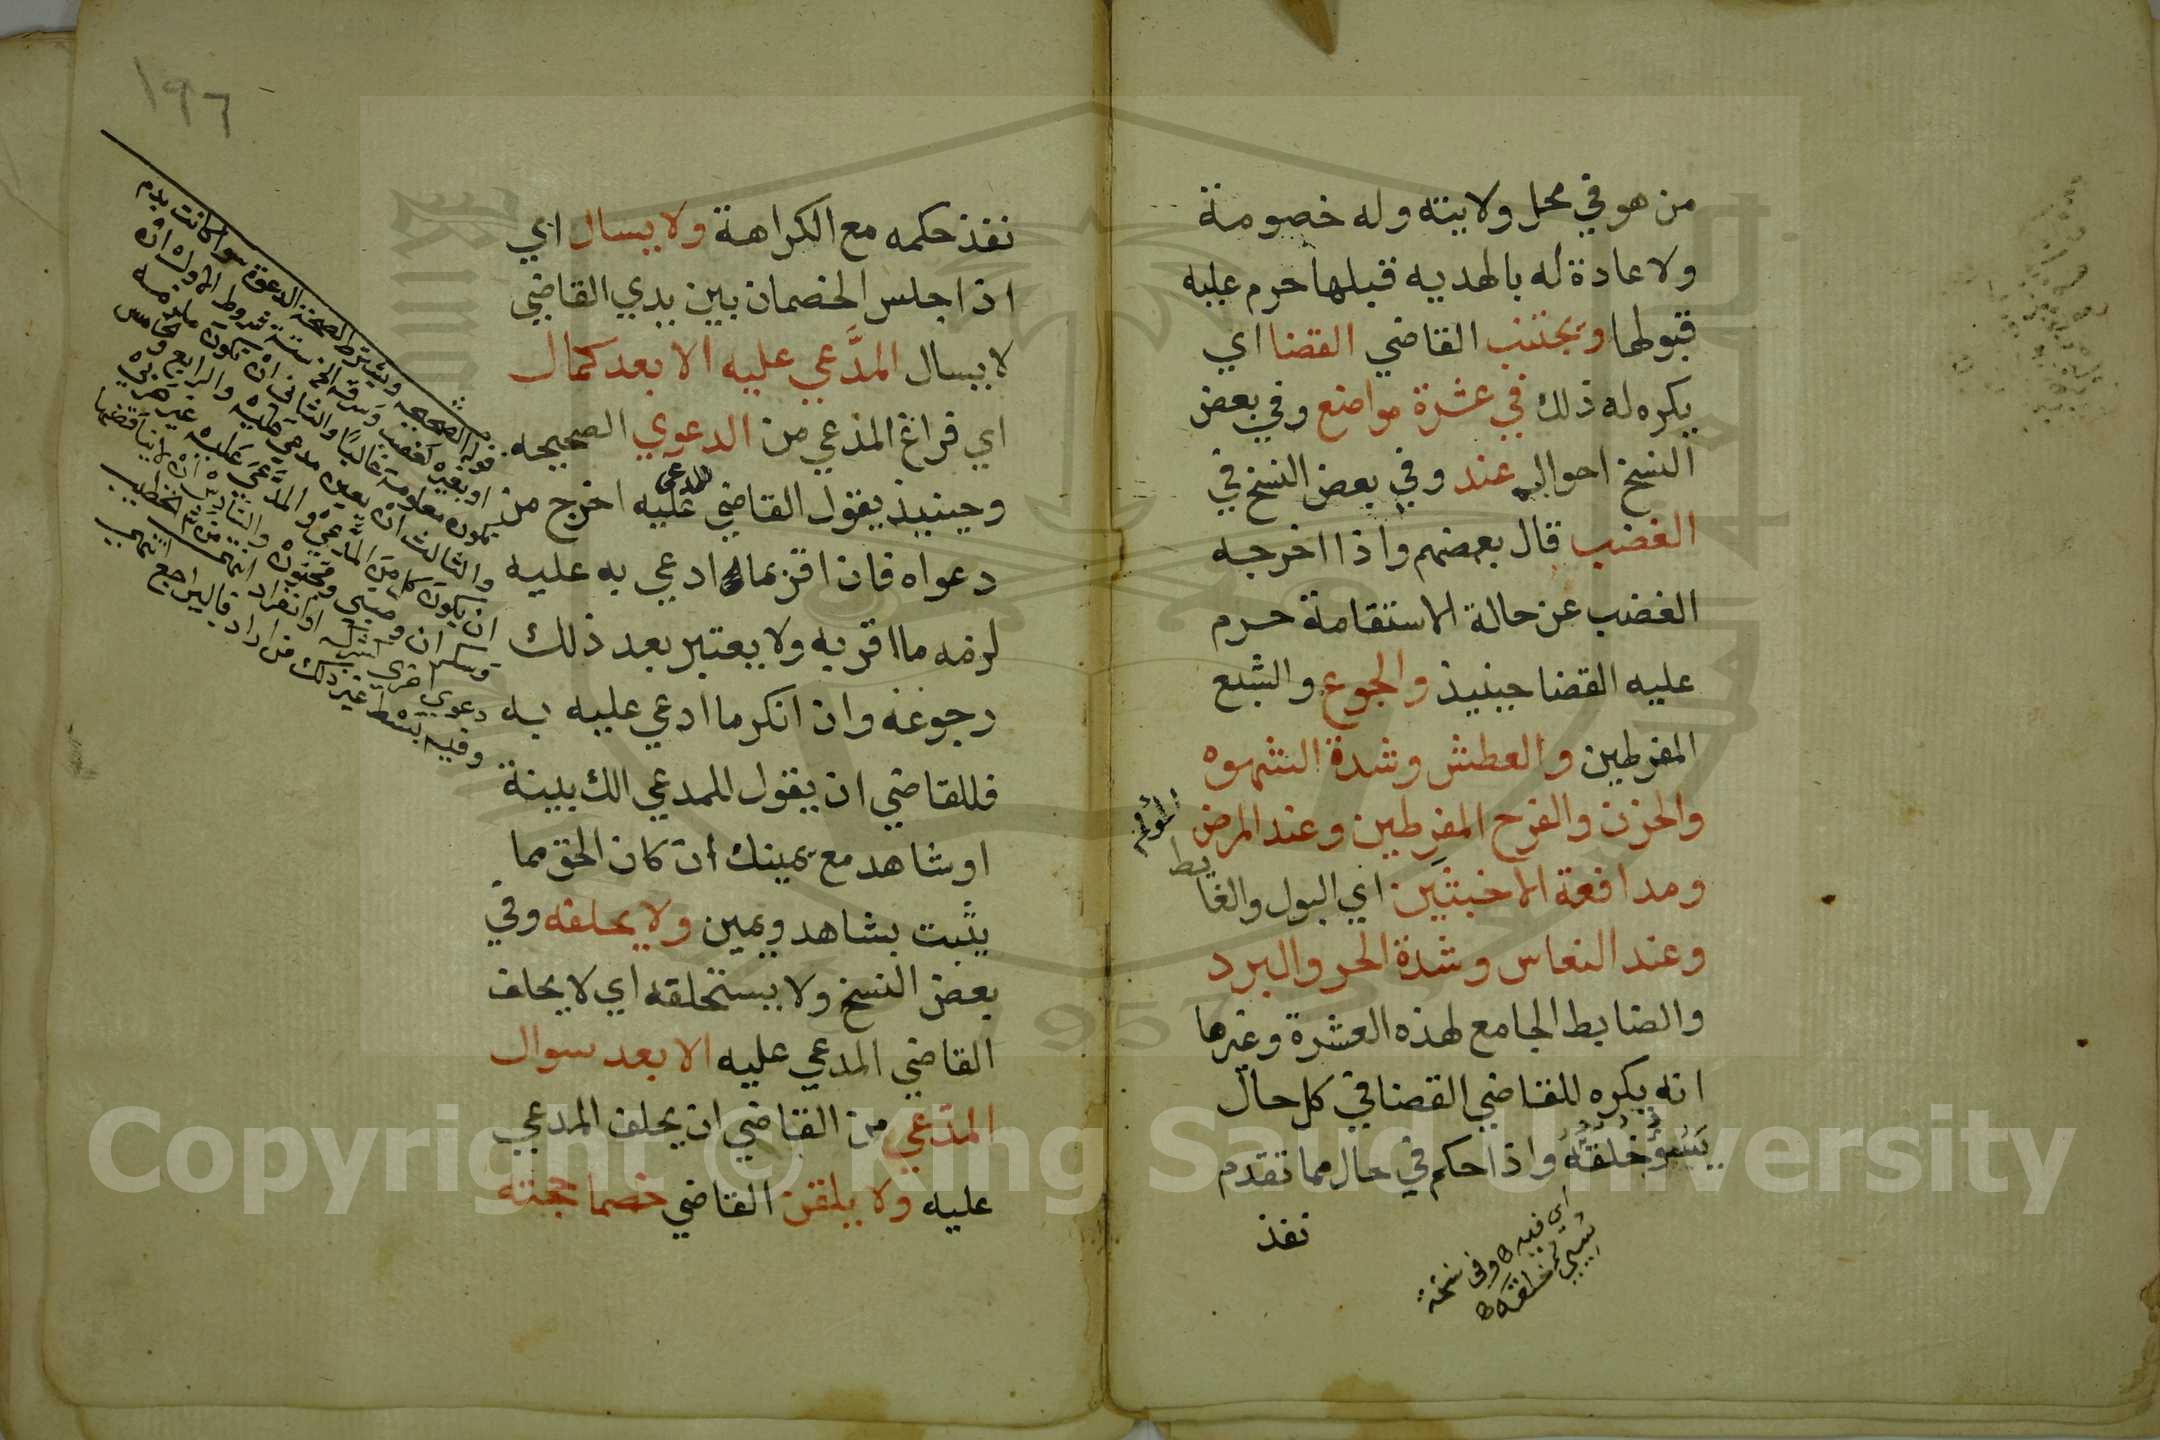 من هو في محل ولايته وله خصومة
ولا عادة له بالهديه قبلها حرم عليه
قبولها ويجتنب القاضي القضا اي
يكره له ذلك في عشرة مواضع وفي بعض
النسخ احوال عند وفي بعض النسخ في
الغضب قال بعضهم واذا اخرجه
الغضب عن حالة الاستقامة حرم
عليه القضا حينيذ والجوع والشبع
المفرطين والعطش وشدة الشهوه
والحزن والفرح المفرطين وعند المرض
المولم
ومدافعة الاخبثين اي البول والغايط
وعند النعاس وشدة الحر والبرد
والضابط الجامع لهذه العشرة وغيرها
انه يكره للقاضي القضا في كل حال
يسوء خلقه واذا حكم في حال مما تقدم
نفذ
اي فيه وفي نسخة
خلقه
١٩٦
نفذ حكمه مع الكراهة ولا يسال اي
اذا جلس الخصمان بين يدي القاضي
لا يسال المدَّعي عليه الا بعد كمال
اي فراغ المدعي من الدعوي الصحيحه
وحينيذ يقول القاضي للمدعى عليه اخرج من
دعواه فان اقر بما ادعي به عليه
لزمه ما اقر به ولا يعتبر بعد ذلك
رجوعه وان انكر ما ادعي عليه به
فللقاضي ان يقول للمدعي الك بينة
او شاهد مع يمينك ان كان الحق مما
يثبت بشاهد ويمين ولا يحلفه وفي
بعض النسخ ولا يستحلفه اي لا يحلف
القاضي المدعي عليه الا بعد سوال
المدعي من القاضي ان يحلف المدعي
عليه ولا يلقن القاضي خصما حجته
قوله الصحيحه ويشترط لصحة الدعوة سوا كانت بدم
او بغيره كغصب وسرقة الخ ستة شروط الاول ان
يكون معلومة غالبًا والثاني ان تكون ملزمه
والثالث ان يعين مدعي عليه والرابع والخامس
ان يكون كل من المدعي والمدعى عليه غير حربي
دعوي اخري
وفيه بسط غير ذلك من اراد فاليراجع انتهى
Copyright © King Saud University
1957